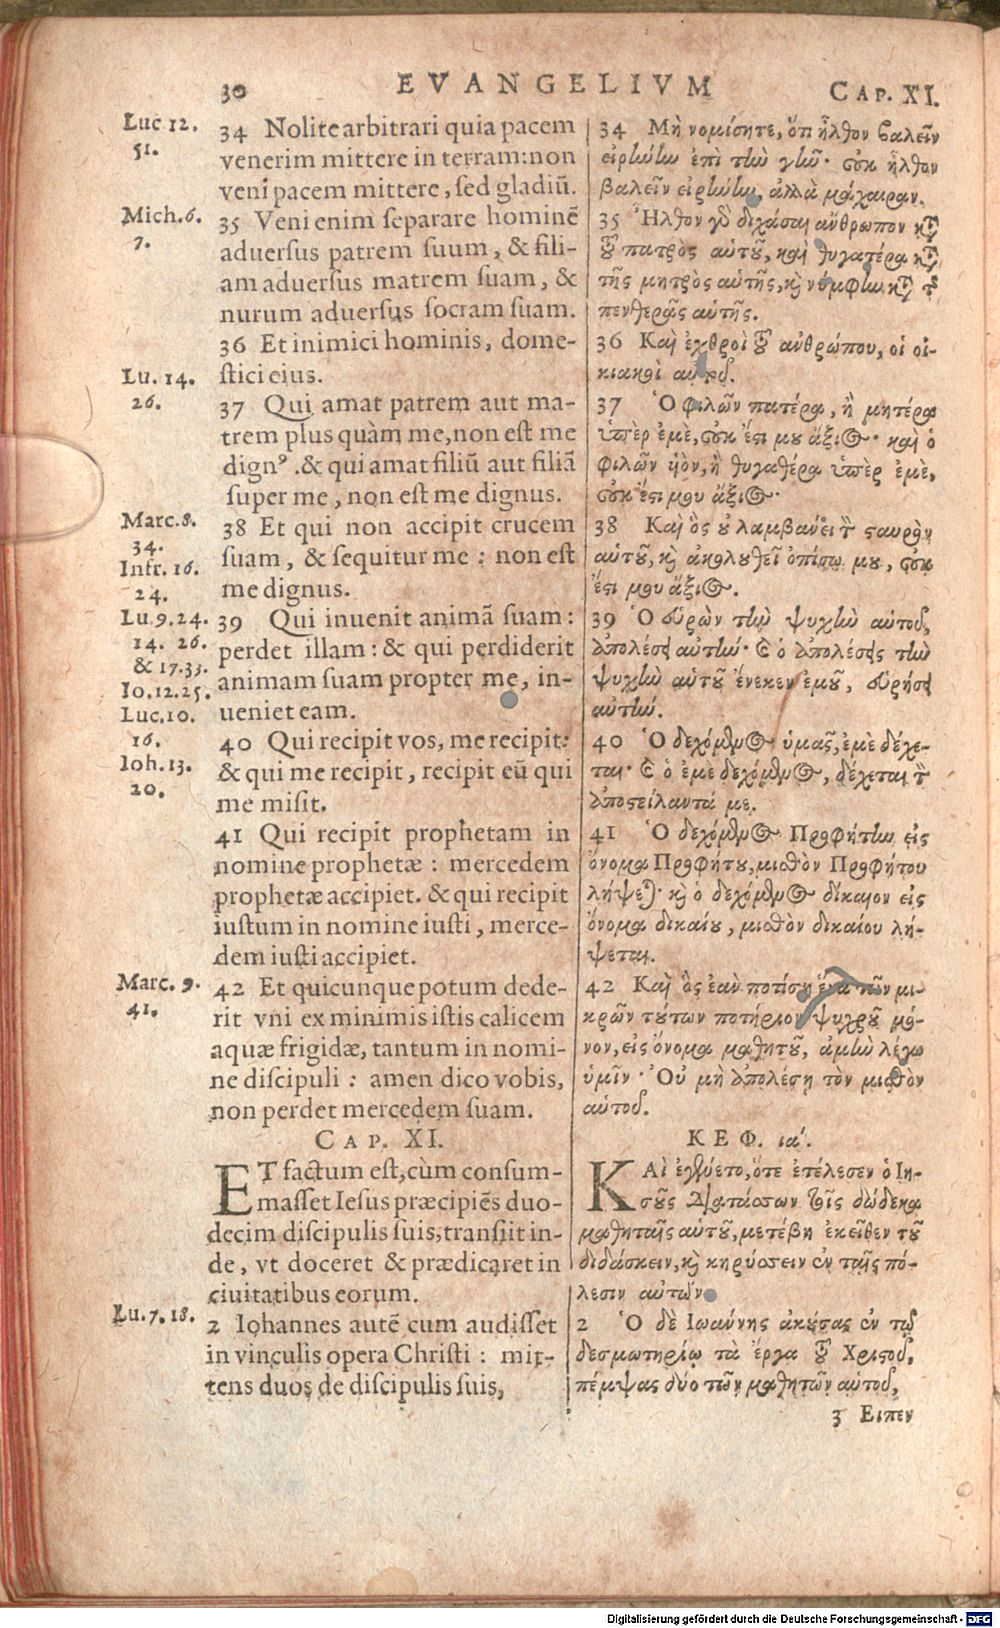 30 EVANGELIVM CAP. XI.
Luc 12.
51.
Mich. 6.
7.
Lu. 14.
26.
Marc. 8.
34.
Infr. 16.
24.
Lu. 9. 24.
14. 26.
& 17. 33.
Io. 12. 25.
Luc. 10.
16.
Ioh. 13.
20.
Marc. 9.
41.
Lu. 7. 18.
34 Nolite arbitrari quia pacem
venerim mittere in terram: non
veni pacem mittere, sed gladiũ.
35 Veni enim separare hominẽ
adversus patrem suum, & fili-
am adversus matrem suam, &
nurum adversus socram suam.
36 Et inimici hominis, dome-
stici eius.
37 Qui amat patrem aut ma-
trem plus quàm me, non est me
dignꝰ. & qui amat filiũ aut filiã
super me, non est me dignus.
38 Et qui non accipit crucem
suam, & sequitur me: non est
me dignus.
39 Qui inuenit animã suam:
perdet illam: & qui perdiderit
animam suam propter me, in-
ueniet eam.
40 Qui recipit vos, me recipit:
& qui me recipit, recipit eũ qui
me misit.
41 Qui recipit prophetam in
nomine prophetæ: mercedem
prophetæ accipiet. & qui recipit
iustum in nomine iusti, merce-
dem iusti accipiet.
42 Et quicunque potum dede-
rit vni ex minimis istis calicem
aquæ frigidæ, tantum in nomi-
ne discipuli: amen dico vobis,
non perdet mercedem suam.
CAP. XI.
ET factum est, cùm consum-
masset Iesus præcipiẽs duo-
decim discipulis suis, transiit in-
de, vt doceret & prædicaret in
ciuitatibus eorum.
2 Iohannes autẽ cum audisset
in vinculis opera Christi: mit-
tens duos de discipulis suis,
34 Μὴ νομίσητε, ὅτι ἦλθον βαλεῖν
εἰρήνην ἐπὶ τὴν γῆν· οὐκ ἦλθον
βαλεῖν εἰρήνην, ἀλλὰ μάχαιραν.
35 Ἦλθον γὸ διχάσαι ἄνθρωπον κτ̃
τοῦ πατρὸς αὐτοῦ, καὶ θυγατέρα κτ̃
τῆς μητρὸς αὐτῆς, κὶ νύμφην κτ̃ τ῀
πενθερᾶς αὐτῆς.
36 Καὶ ἐχθροὶ τοῦ ἀνθρώπου, οἱ οἰ-
κιακοὶ αὐτοῦ.
37 Ὁ φιλῶν πατέρα, ἢ μητέρα
ὑπὲρ ἐμὲ, οὐκ ἔστι μου ἄξιος· καὶ ὁ
φιλῶν υἱὸν, ἢ θυγαθέρα ὑπὲρ ἐμὲ,
οὐκ ἔστι μου ἄξιος·
38 Καὶ ὃς οὐ λαμβανει τὸν σταυρὸν
αὐτοῦ, κὶ ἀκολουθεῖ ὀπίσω μου, οὐκ
ἔστι μου ἄξιος.
39 Ὁ εὑρὼν τὴν ψυχὴν αὐτοῦ,
ἀπολέσει αὐτήν· καὶ ὁ ἀπολέσας τὴν
ψυχὴν αὐτοῦ ἕνεκεν ἐμοῦ, εὑρήσει
αὐτήν.
40 Ὁ δεχόμενος ὑμᾶς, ἐμὲ δέχε-
ται· καὶ ὁ ἐμὲ δεχόμενος, δέχεται τὸν
ἀποστείλαντά με.
41 Ὁ δεχόμενος Προφήτην εἰς
ὄνομα Προφήτου, μισθὸν Προφήτου
λήψεται· κὶ ὁ δεχόμενος δίκαιον εἰς
ὄνομα δικαίου, μισθὸν δικαίου λή-
ψεται.
42 Καὶ ὃς ἐὰν ποτίση ἕνα τῶν μι-
κρῶν τούτων ποτήριον ψυχροῦ μό-
νον, εἰς ὄνομα μαθητοῦ, ἀμὴν λέγω
ὑμῖν· Οὐ μὴ ἀπολέση τὸν μισθὸν
αὐτοῦ.
ΚΕΦ. ια΄.
ΚΑὶ ἐγένετο, ὅτε ἐτέλεσεν ὁ Ιη-
σοῦς διατάσσων τοῖς δώδεκα
μαθηταῖς αὐτοῦ, μετέβη ἐκεῖθεν τοῦ
διδάσκειν, κὶ κηρύσσειν ἐν ταῖς πό-
λεσιν αὐτῶν
2 Ὁ δὲ Ιωάννης ἀκούσας ἐν τῷ
δεσμωτηρίῳ τὰ ἔργα τοῦ Χριστοῦ,
πέμψας δύο τῶν μαθητῶν αὐτοῦ,
3 Ειπεν
Digitalisierung gefördert durch die Deutsche Forschungsgemeinschaft - DFG